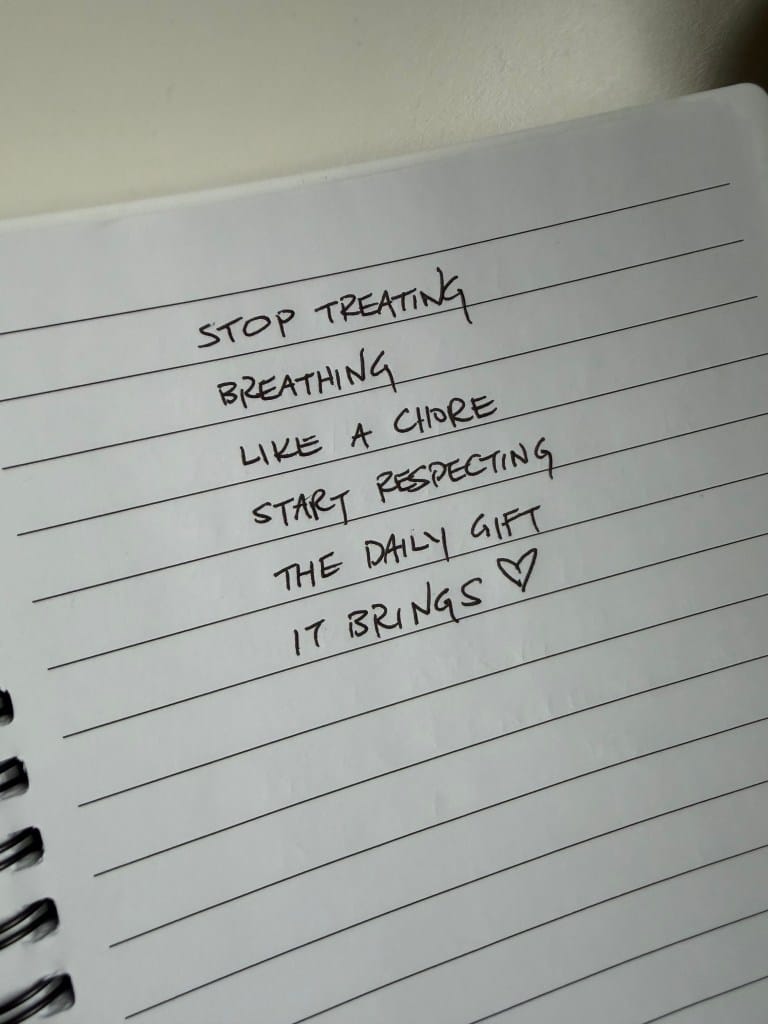 STOP TREATING
BREATHING
LIKE A CHORE
START RESPECTING
THE DAILY GIFT
IT BRINGS ♡